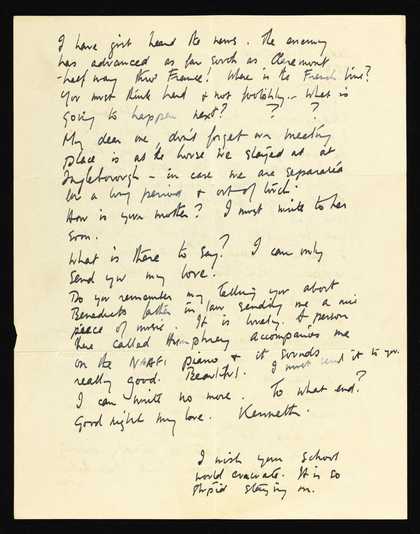 I have just heard the news. The enemy
has advanced as far south as Claremont
- half way thro' France! Where is the French line?
You must think hard & not foolishly. - What is
going to happen next? ?! ?
My dear one, don't forget our meeting
place is at the house we stayed at at
Ingleborough - in case we are separated
for a long period & out of touch.
How is your mother? I must write to her
soon.
What is there to say? I can only
send you my love.
Do you remember my telling you about
Benedicts father in law sending me a nice
peece of music. It is lovely. A person
here called Humphrey accompanies me
on the NAAFI piano & it sounds
really good. Beautiful. I must send it to you.
I can write no more. To what end?
Good night my love. Kenneth.
I wish your School
would evacuate. It is so
stupid staying on.